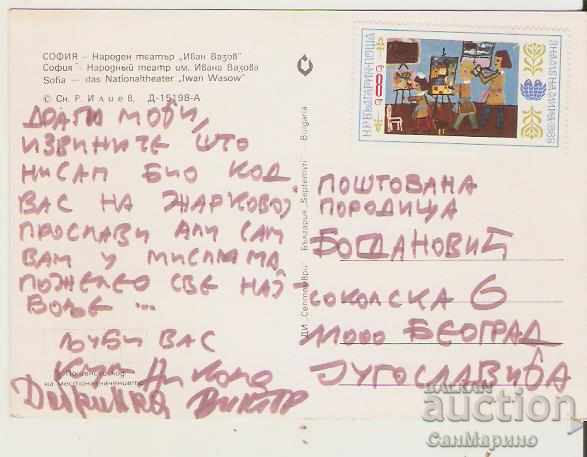 СОФИЯ – Народен театър „Иван Вазов“
София – Народный театр им. Ивана Вазова
Sofia – das Nationaltheater „Iwan Wasow“
© Сн. Р. Илиев, Д-15198-А
МОЈИ,
ИЗВИНИТЕ ШТО
НИСАМ БИО КОД
ВАС НА ЖАРКОВОЈ
ПРОСЛАВИ АЛИ САМ
ВАМ У МИСЛИМА
ПОЖЕЛЕО СВЕ НАЈ-
БОЉЕ ...
ЉУБИ ВАС
Пощенски код
на местоназначението
ДИ „Септември“ България „Septemvri“ Bulgaria
НР БЪЛГАРИЯ·ПОЩА
8
ПОШТОВАНА
ПОРОДИЦА
БОГДАНОВИЋ
СОКОЛСКА 6
11000 БЕОГРАД
ЈУГОСЛАВИЈА
BALKAN
auction
СанМарино